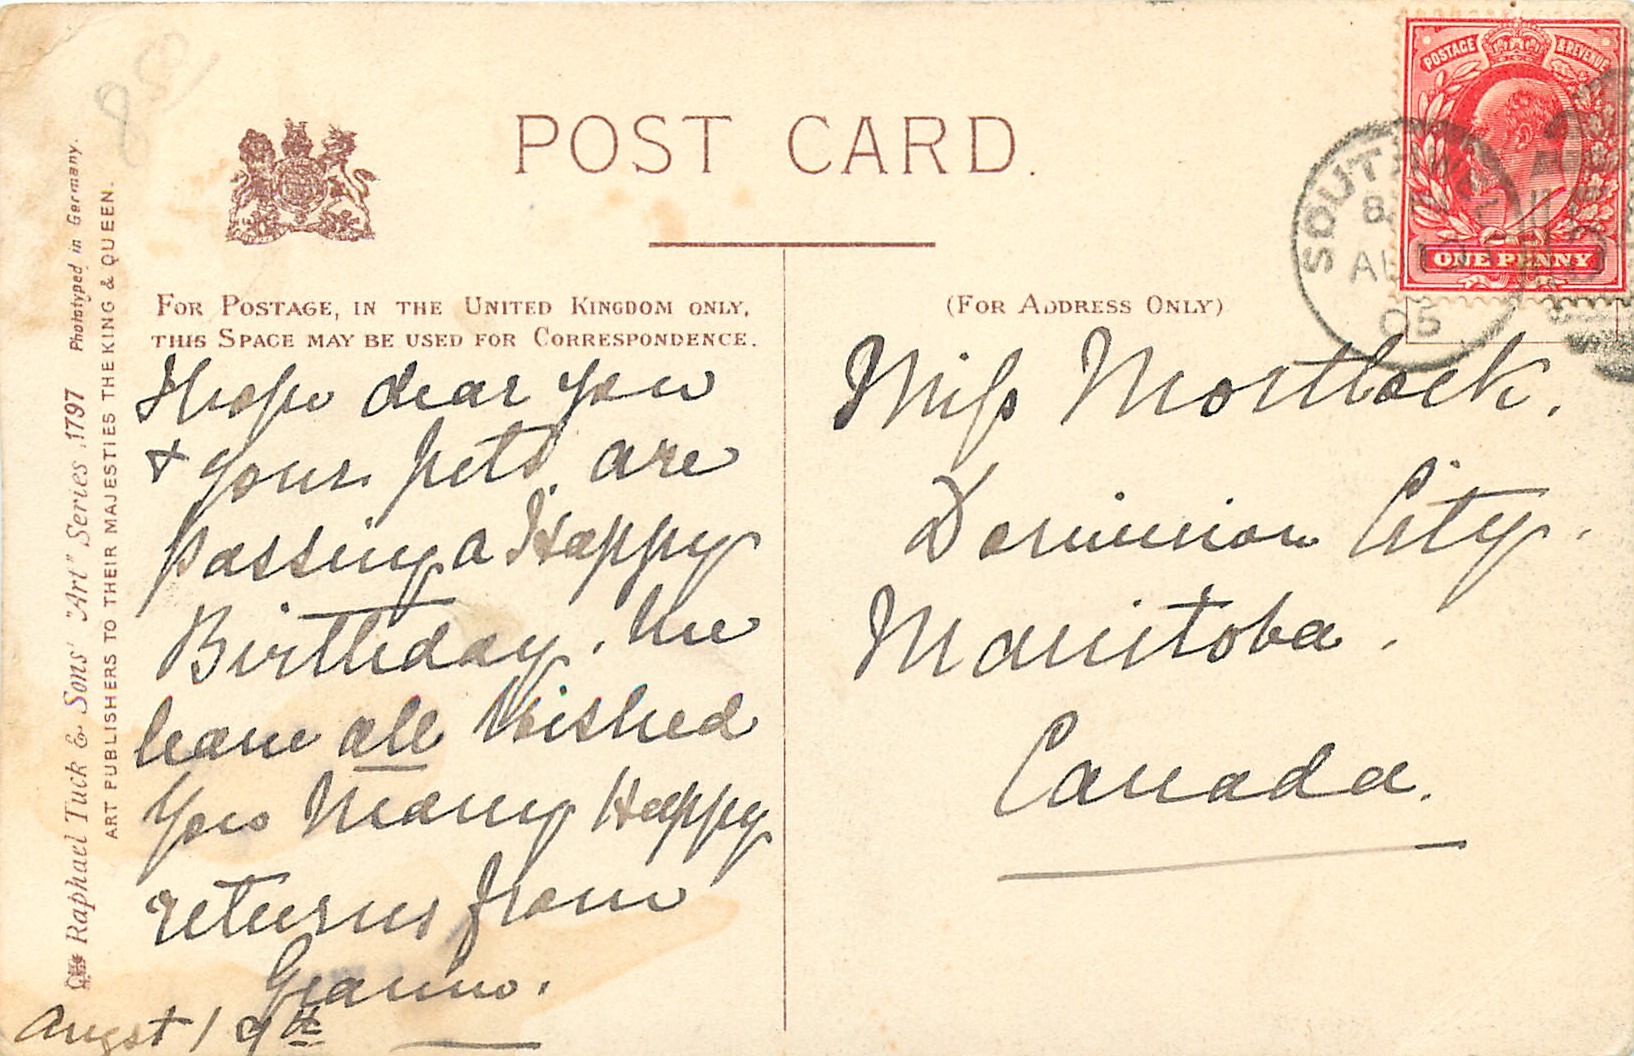 850
POST CARD.
POSTAGE & REVENUE
ONE PENNY
SOUTHWELL
AU 19
05
FOR POSTAGE, IN THE UNITED KINGDOM ONLY,
THIS SPACE MAY BE USED FOR CORRESPONDENCE.
(FOR ADDRESS ONLY)
I hope dear you
+ your pets are
passing a Happy
Birthday. We
have all Wished
you Many Happy
returns from
Augst 19th
Miss Mortlock.
Dominion City.
Manitoba.
Canada.
Raphael Tuck & Sons' "Art" Series 1797 Phototyped in Germany.
ART PUBLISHERS TO THEIR MAJESTIES THE KING & QUEEN.